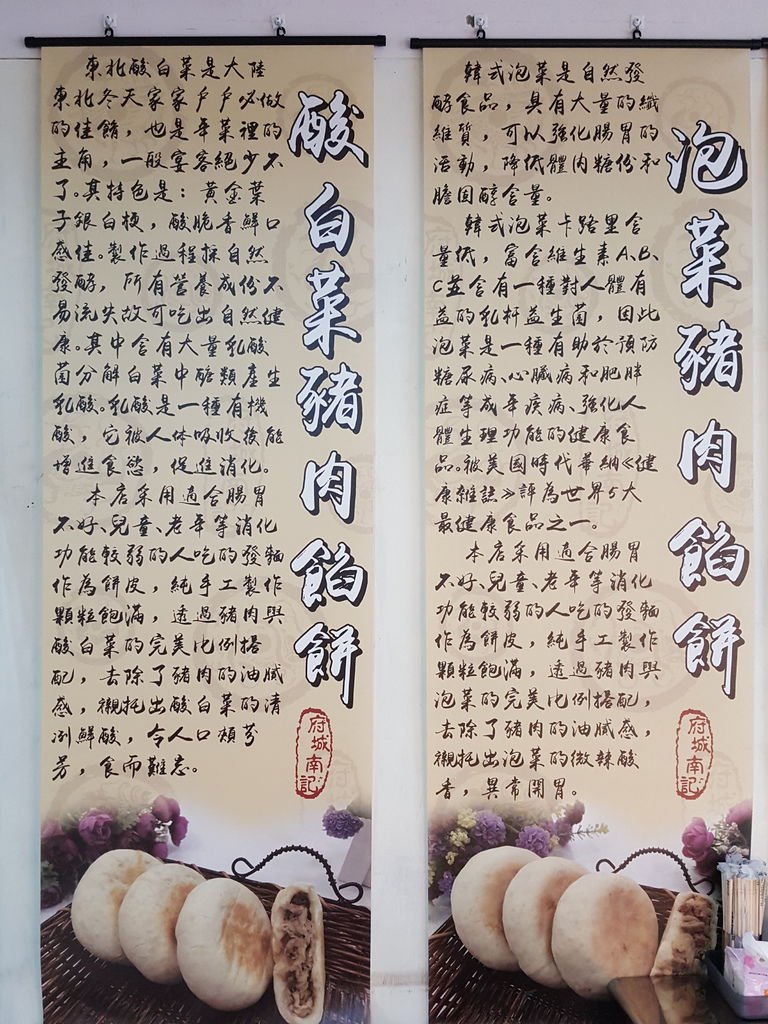 酸白菜豬肉餡餅
東北酸白菜是大陸
東北冬天家家戶戶必做
的佳餚，也是年菜裡的
主角，一般宴客絕少不
了。其特色是：黃金葉
子銀白梗，酸脆香鮮口
感佳。製作過程採自然
發酵，所有營養成份不
易流失故可吃出自然健
康。其中含有大量乳酸
菌分解白菜中醣類產生
乳酸。乳酸是一種有機
酸，它被人体吸收後能
增進食慾，促進消化。
本店采用適合腸胃
不好、兒童、老年等消化
功能較弱的人吃的發麵
作為餅皮，純手工製作
顆粒飽滿，透過豬肉與
酸白菜的完美比例搭
配，去除了豬肉的油膩
感，襯托出酸白菜的清
冽鮮酸，令人口頰芬
芳，食而難忘。
府城南記
泡菜豬肉餡餅
韓式泡菜是自然發
酵食品，具有大量的纖
維質，可以強化腸胃的
活動，降低體肉糖份和
膽固醇含量。
韓式泡菜卡路里含
量低，富含維生素A、B、
C並含有一種對人體有
益的乳杆益生菌，因此
泡菜是一種有助於預防
糖尿病、心臟病和肥胖
症等成年疾病、強化人
體生理功能的健康食
品。被美國時代華納《健
康雜誌》評為世界5大
最健康食品之一。
本店采用適合腸胃
不好、兒童、老年等消化
功能較弱的人吃的發麵
作為餅皮，純手工製作
顆粒飽滿，透過豬肉與
泡菜的完美比例搭配，
去除了豬肉的油膩感，
襯托出泡菜的微辣酸
香，異常開胃。
府城南記